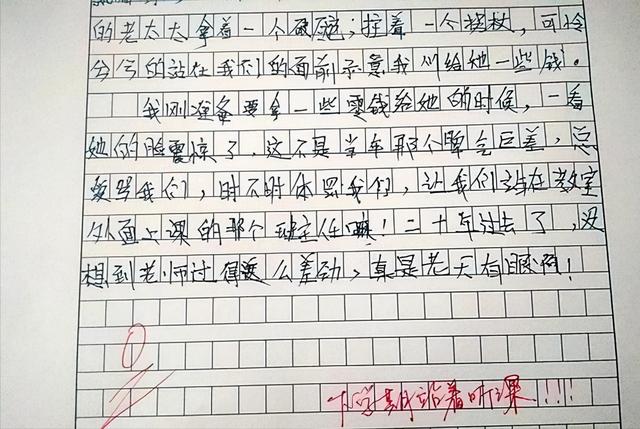 的老太太拿着一个破碗;拄着一个拐杖，可怜
兮兮的站在我们的面前示意我们给她一些钱。
我刚准备要拿一些零钱给她的时候，一看
她的脸震惊了，这不是当年那个脾气巨差，总
爱骂我们，时不时体罚我们，让我们站在教室
外面上课的那个班主任嘛！二十年过去了，没
想到老师过得这么差劲，真是老天有眼啊！
0
下学期站着听课!!!